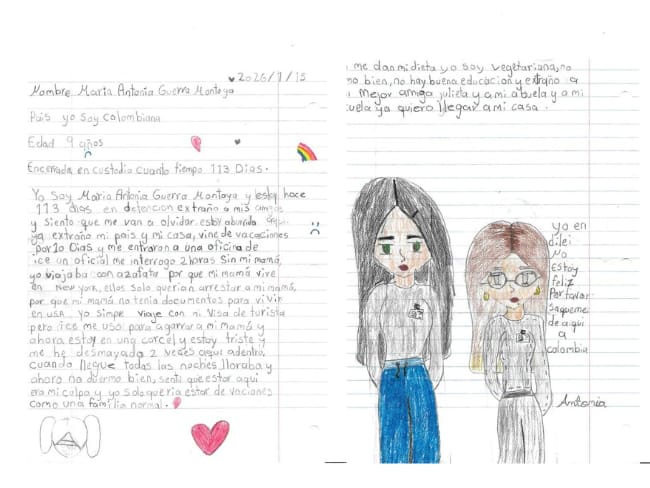 2026/1/15
Nombre Maria Antonia Guerra Montoya
Pais yo soy colombiana
Edad 9 años
Encerrada en custodia cuanto tiempo 113 Dias.
Yo soy Maria Antonia Guerra Montoya y estoy hace
113 dias en detencion extraño a mis amigos
y siento que me van a olvidar estoy aburida aqui.
ya extraño mi pais y mi casa, vine de vacaciones
por 10 Dias y me entraron a una oficina de
ice un oficial me interrogo 2 horas Sin mi mamá,
yo viajaba con azafata por que mi mamá vive
en New york, ellos solo querian arrestar a mi mamá,
por que mi mamá no tenia documentos para vivir
en USA. yo Simpre viaje con mi Visa de turista
pero ice me uso para agarrar a mi mamá y
ahora estoy en una carcel y estoy triste y
me he desmayado 2 veces aqui adentro,
cuando llegue todas las noches lloraba y
ahora no duermo bien, senti que estar aqui
era mi culpa y yo solo queria estar de vaciones
como una familia normal.
me dan mi dieta yo soy vegetariana, no
mo bien, no hay buena educacion y extraño a
mejor amiga julieta y a mi abuela y a mi
cuela ya quiero llegar a mi casa.
yo en
dilei
no
estoy
feliz
Por favor
saqueme
de aqui
a
colombia
Antonia